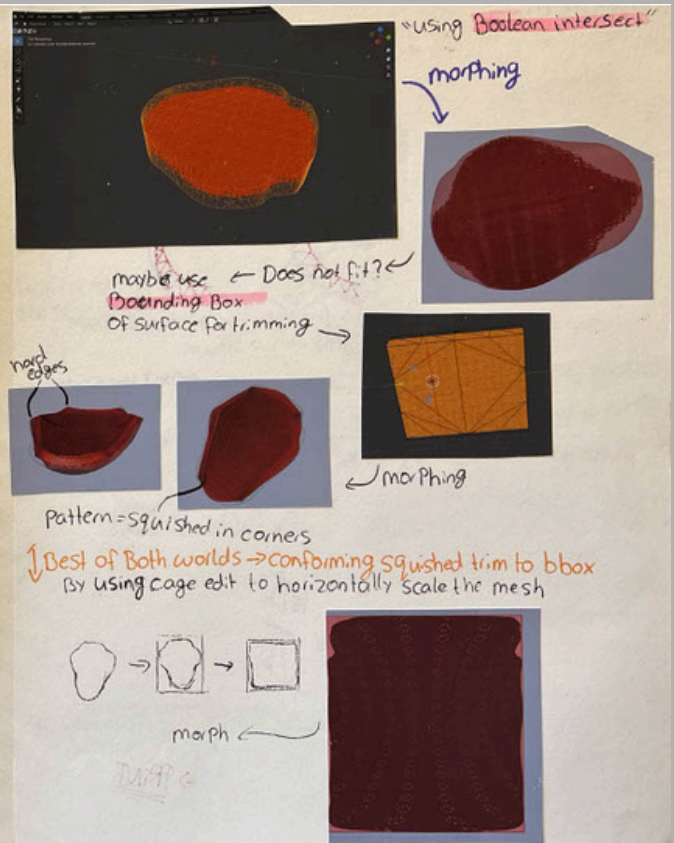 "using Boolean intersect"
morphing
Does not fit?
maybe use
Bounding Box
of surface for trimming
hard
edges
morphing
pattern = squished in corners
Best of Both worlds → conforming squished trim to bbox
By using cage edit to horizontally scale the mesh
morph